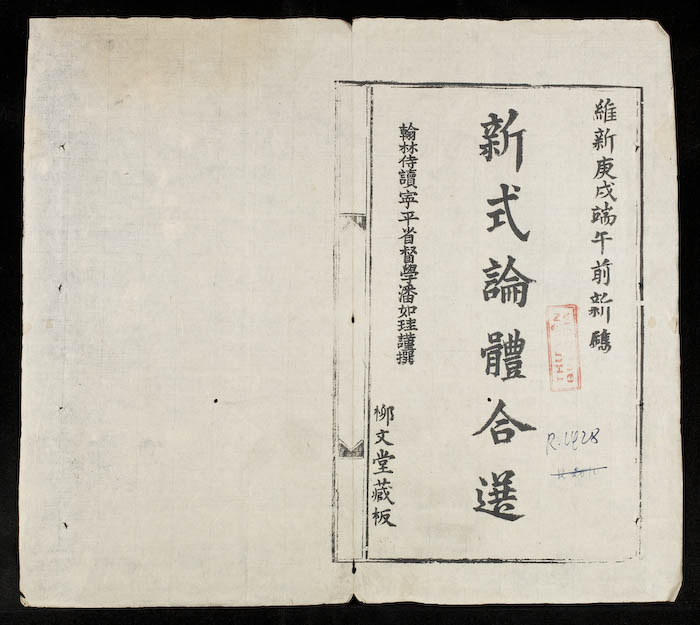 維新庚戌端午前新鐫
新式論體合選
翰林侍讀寜平省督學潘如珪謹撰
柳文堂藏板
R.1428